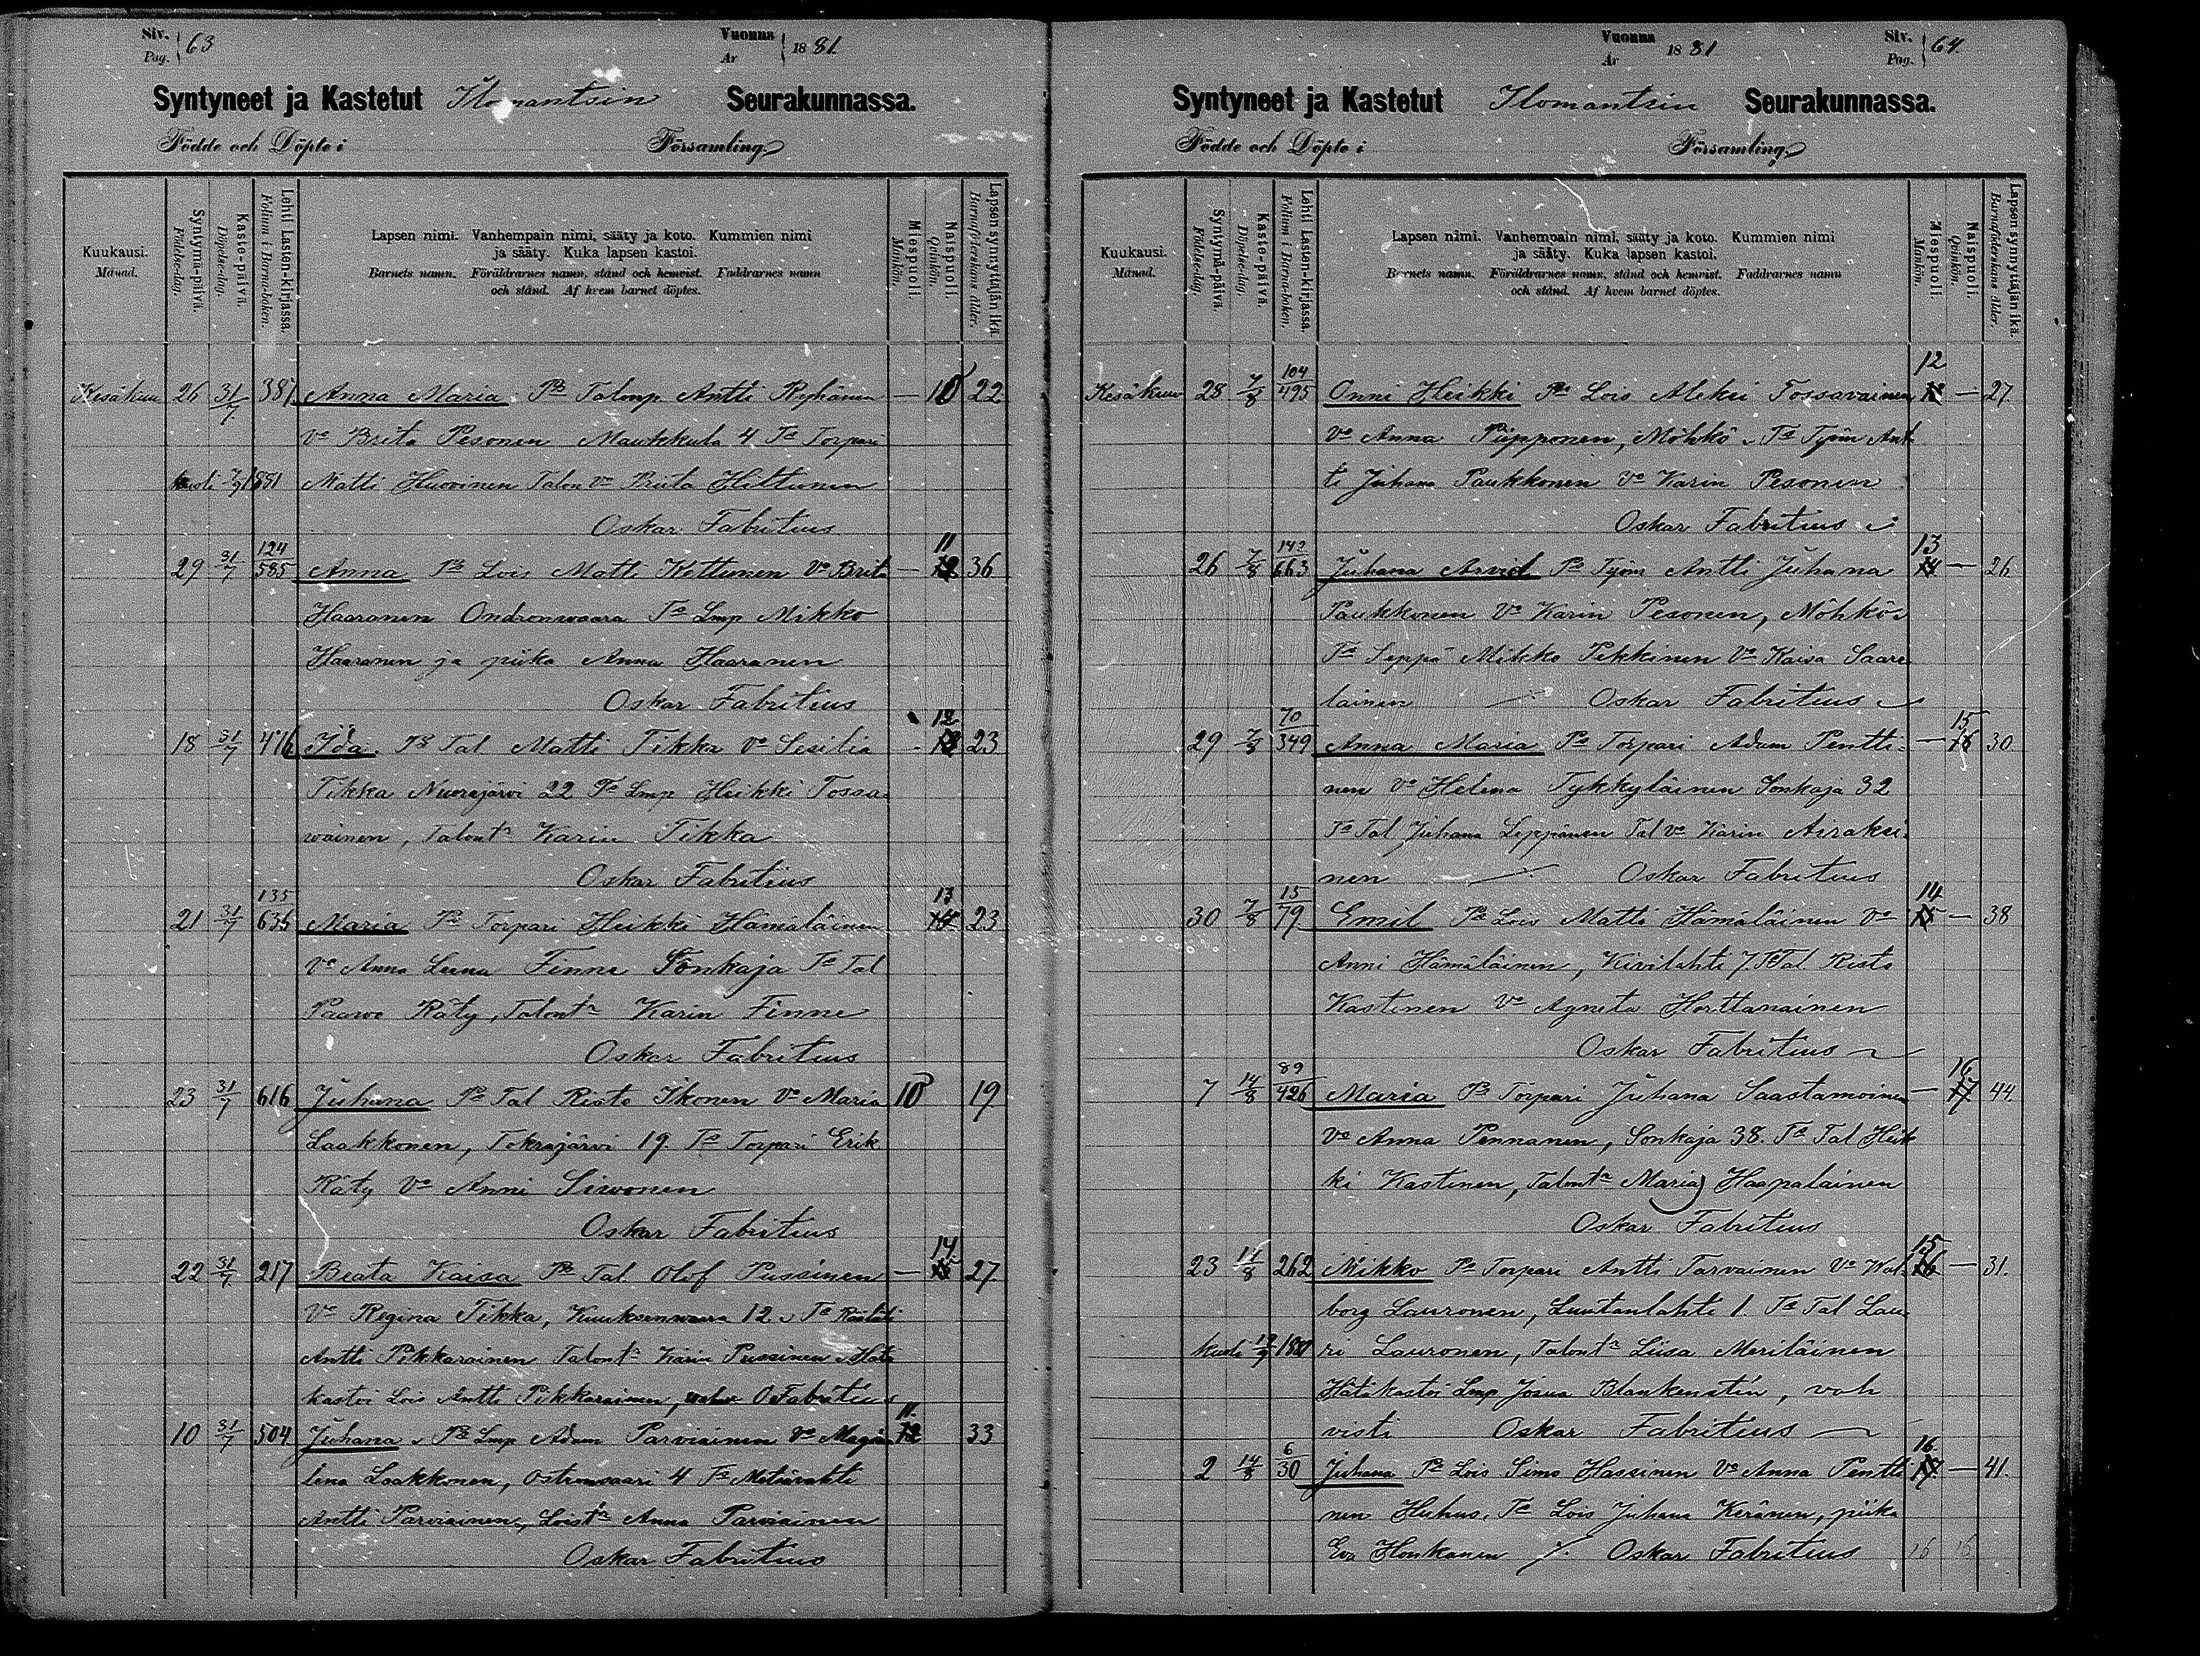 Siv. Pag. 63
Vuonna År 1881.
Syntyneet ja Kastetut Ilomantsin Seurakunnassa.
Födde och Döpte i Församling.
Kuukausi. Månad.
Syntymä-päivä. Födelse-dag.
Kaste-päivä. Döpelse-dag.
Lehti Lasten-kirjassa. Folium i Barna-boken.
Lapsen nimi. Vanhempain nimi, sääty ja koto. Kummien nimi
ja sääty. Kuka lapsen kastoi.
Barnets namn. Föräldrarnes namn, stånd och hemvist. Faddrarnes namn
och stånd. Af hvem barnet döptes.
Miespuoli. Mankön.
Naispuoli. Qvinkön.
Lapsen synnyttäjän ikä. Barnaföderskans ålder.
Kesäkuu 26 31/7 387 Anna Maria Ps Talonp Antti Ryhänen — 10 22
Vo Brita Pesonen Maukkula 4 Ts Torpari
kuoli 7/9 1881 Matti Huovinen Talon Vo Briita Hiltunen
Oskar Fabritius
29 31/7 124/585 Anna Ps Lois Matti Kettunen Vo Brita — 11 36
Haaranen Ondronwaara Ts Lmp Mikko
Haaranen ja piika Anna Haaranen
Oskar Fabritius
18 31/7 476 Ida Ps Tal Matti Tikka Vo Sesilia - 12 23
Tikka Nuorajärvi 22 Ts Lmp Heikki Tossa-
wainen, Talontr Karin Tikka
Oskar Fabritius
21 31/7 135/635 Maria Ps Torpari Heikki Hämäläinen 13 23
Vo Anna Leena Finne Sonkaja Ts Tal
Paavo Räty, Talontr Karin Finne
Oskar Fabritius
23 31/7 616 Juhana Ps Tal Risto Ikonen Vo Maria 10 19
Laakkonen, Tokrajärvi 19. Ts Torpari Erik
Räty Vo Anni Siwonen
Oskar Fabritius
22 31/7 217 Beata Kaisa Ps Tal Olof Pussinen — 14 27
Vo Regina Tikka, Kuuksenwaara 12 Ts Räätäli
Antti Pikkarainen Talontr Karin Pussinen Hätä
kastoi Lois Antti Pikkarainen, O Fabritius
10 31/7 504 Juhana Ps Lmp Adam Parviainen Vo Magda 11 33
lena Laakkonen, Ostronsaari 4 Ts Metsävahti
Antti Parviainen, Loistr Anna Parviainen
Oskar Fabritius
Vuonna År 1881
Siv. Pag. 64.
Syntyneet ja Kastetut Ilomantsin Seurakunnassa.
Födde och Döpte i Församling.
Kuukausi. Månad.
Syntymä-päivä. Födelse-dag.
Kaste-päivä. Döpelse-dag.
Lehti Lasten-kirjassa. Folium i Barna-boken.
Lapsen nimi. Vanhempain nimi, sääty ja koto. Kummien nimi
ja sääty. Kuka lapsen kastoi.
Barnets namn. Föräldrarnes namn, stånd och hemvist. Faddrarnes namn
och stånd. Af hvem barnet döptes.
Miespuoli. Mankön.
Naispuoli. Qvinkön.
Lapsen synnyttäjän ikä. Barnaföderskans ålder.
Kesäkuu 28 7/8 104/495 Onni Heikki Ps Lois Aleksi Tossavainen 12 — 27
Vo Anna Piipponen, Möhkö Ts Työm Ant
ti Juhana Paukkonen Vo Karin Pesonen
Oskar Fabritius
26 7/8 142/663 Juhana Arvid Ps Työm Antti Juhana 13 — 26
Paukkonen Vo Karin Pesonen, Möhkö
Ts Seppä Mikko Pekkinen Vo Kaisa Saare
lainen Oskar Fabritius
29 7/8 70/349 Anna Maria Ps Torpari Adam Pentti- — 15 30
nen Vo Helena Tykkyläinen Sonkaja 32
Ts Tal Juhana Leppänen Tal Vo Karin Airaksi-
nen Oskar Fabritius
30 7/8 15/79 Emil Ps Lois Matti Hämäläinen Vo 14 — 38
Anni Hämäläinen, Kivilahti 7. Ts Tal. Risto
Kastinen Vo Agneta Horttanainen
Oskar Fabritius
7 14/8 89/426 Maria Ps Torpari Juhana Saastamoinen — 16 44.
Vo Anna Pennanen, Sonkaja 38. Ts Tal Heik
ki Kastinen, Talontr Maria Haapalainen
Oskar Fabritius
23 14/8 262 Mikko Ps Torpari Antti Tarvainen Vo Wal- 15 — 31.
borg Lauronen, Luutanlahti 1. Ts Tal Lau-
kuoli 19/9 1881 ri Lauronen, Talontr Liisa Meriläinen
Hätäkastoi Lmp Josua Blankenstin, vah
visti Oskar Fabritius
2 14/8 6/30 Juhana Ps Lois Simo Hassinen Vo Anna Pentti 16 — 41.
nen Huhus. Ts Lois Juhana Keränen, piika
Eva Honkanen Oskar Fabritius 16 16